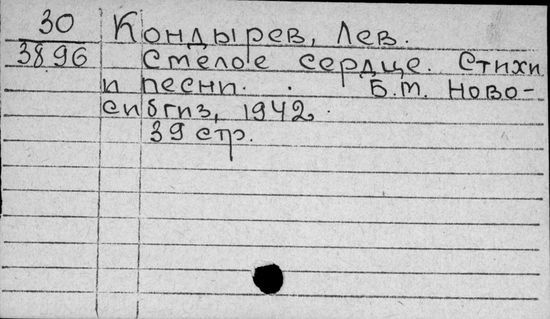 30 Кондырев, Лев.
3896 Смелое сердце. Стихи
и песни. . Б.м. Ново-
сибгиз, 1942.
39 стр.